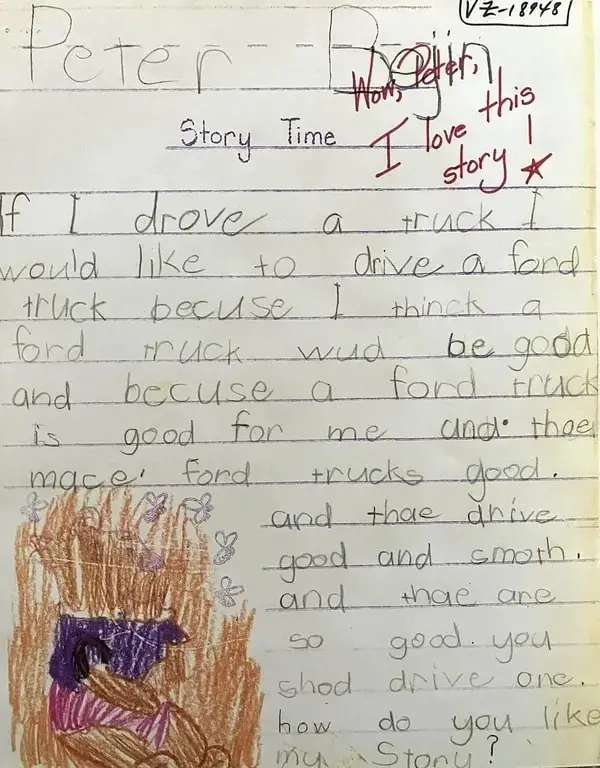 VZ-18948
Peter Begin
Wow, Peter,
I love this
story!
Story Time
If I drove a truck I
would like to drive a ford
truck becuse I thinck a
ford truck wud be good
and becuse a ford truck
is good for me and. thae
mace. ford trucks good.
and thae drive
good and smoth.
and thae are
so good. you
shod drive one.
how do you like
my Story?